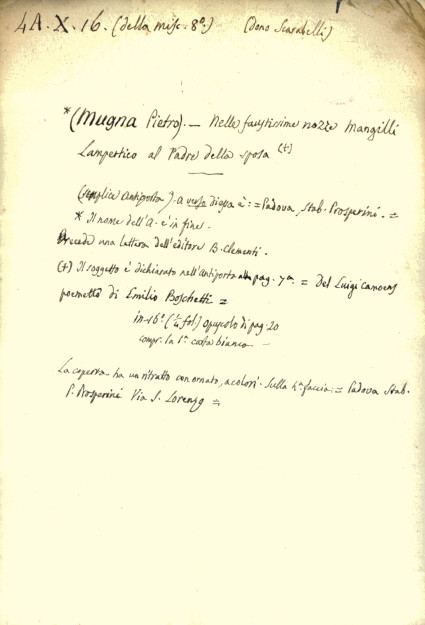 4A. X. 16. (della misc. 8º.) (dono Scarabelli)
* (Mugna Pietro). — Nelle faustissime nozze Mangilli
Lampertico al Padre della sposa (+)
(semplice antiporta). a verso di essa è: = Padova, Stab. Prosperini. =
* Il nome dell'A. è in fine.
Precede una lettera dell'editore B. Clementi.
(+) Il soggetto è dichiarato nell'antiporta alla pag. 7ª = Del Luigi camoens
poemetto di Emilio Boschetti =
in-16º (¼ fol) opuscolo di pag. 20
compr. la 1ª carta bianca —
La coperta ha un ritratto con ornato, a colori. Sulla 4ª faccia: = Padova Stab.
P. Prosperini Via S. Lorenzo =